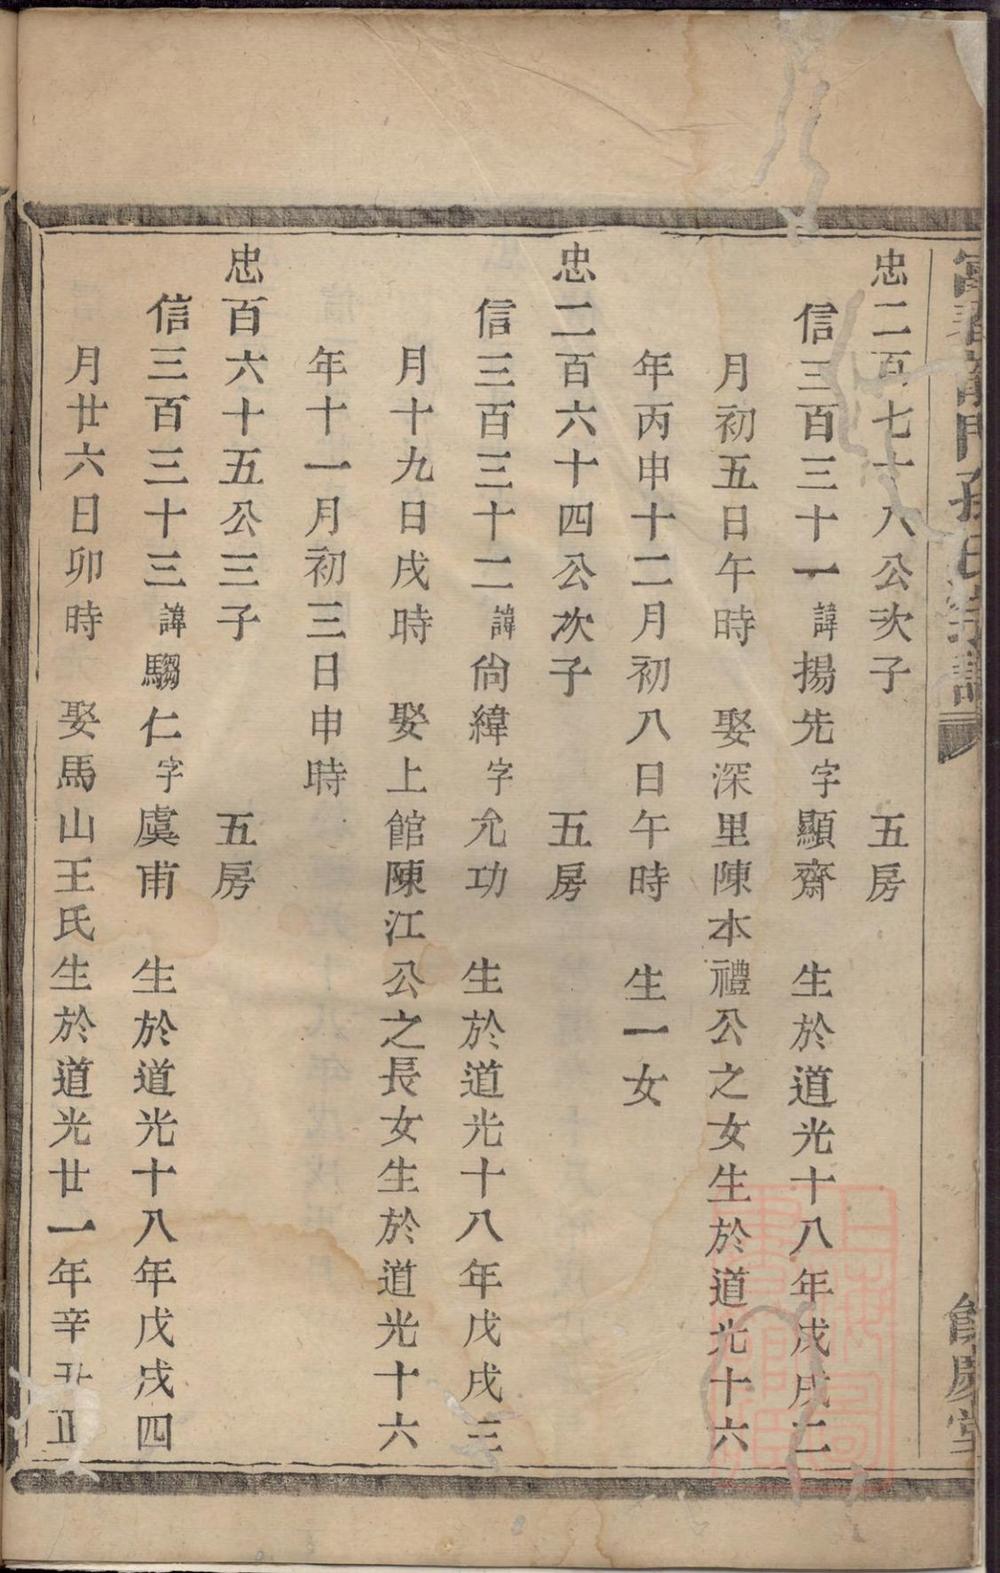 忠二百七十八公次子 五房
信三百三十一諱揚先字顯齋 生於道光十八年戊戌二
月初五日午時 娶深里陳本禮公之女生於道光十六
年丙申十二月初八日午時 生一女
忠二百六十四公次子 五房
信三百三十二諱尙緯字允功 生於道光十八年戊戌三
月十九日戌時 娶上館陳江公之長女生於道光十六
年十一月初三日申時
忠百六十五公三子 五房
信三百三十三諱騶仁字虞甫 生於道光十八年戊戌四
月廿六日卯時 娶馬山王氏生於道光廿一年辛丑正